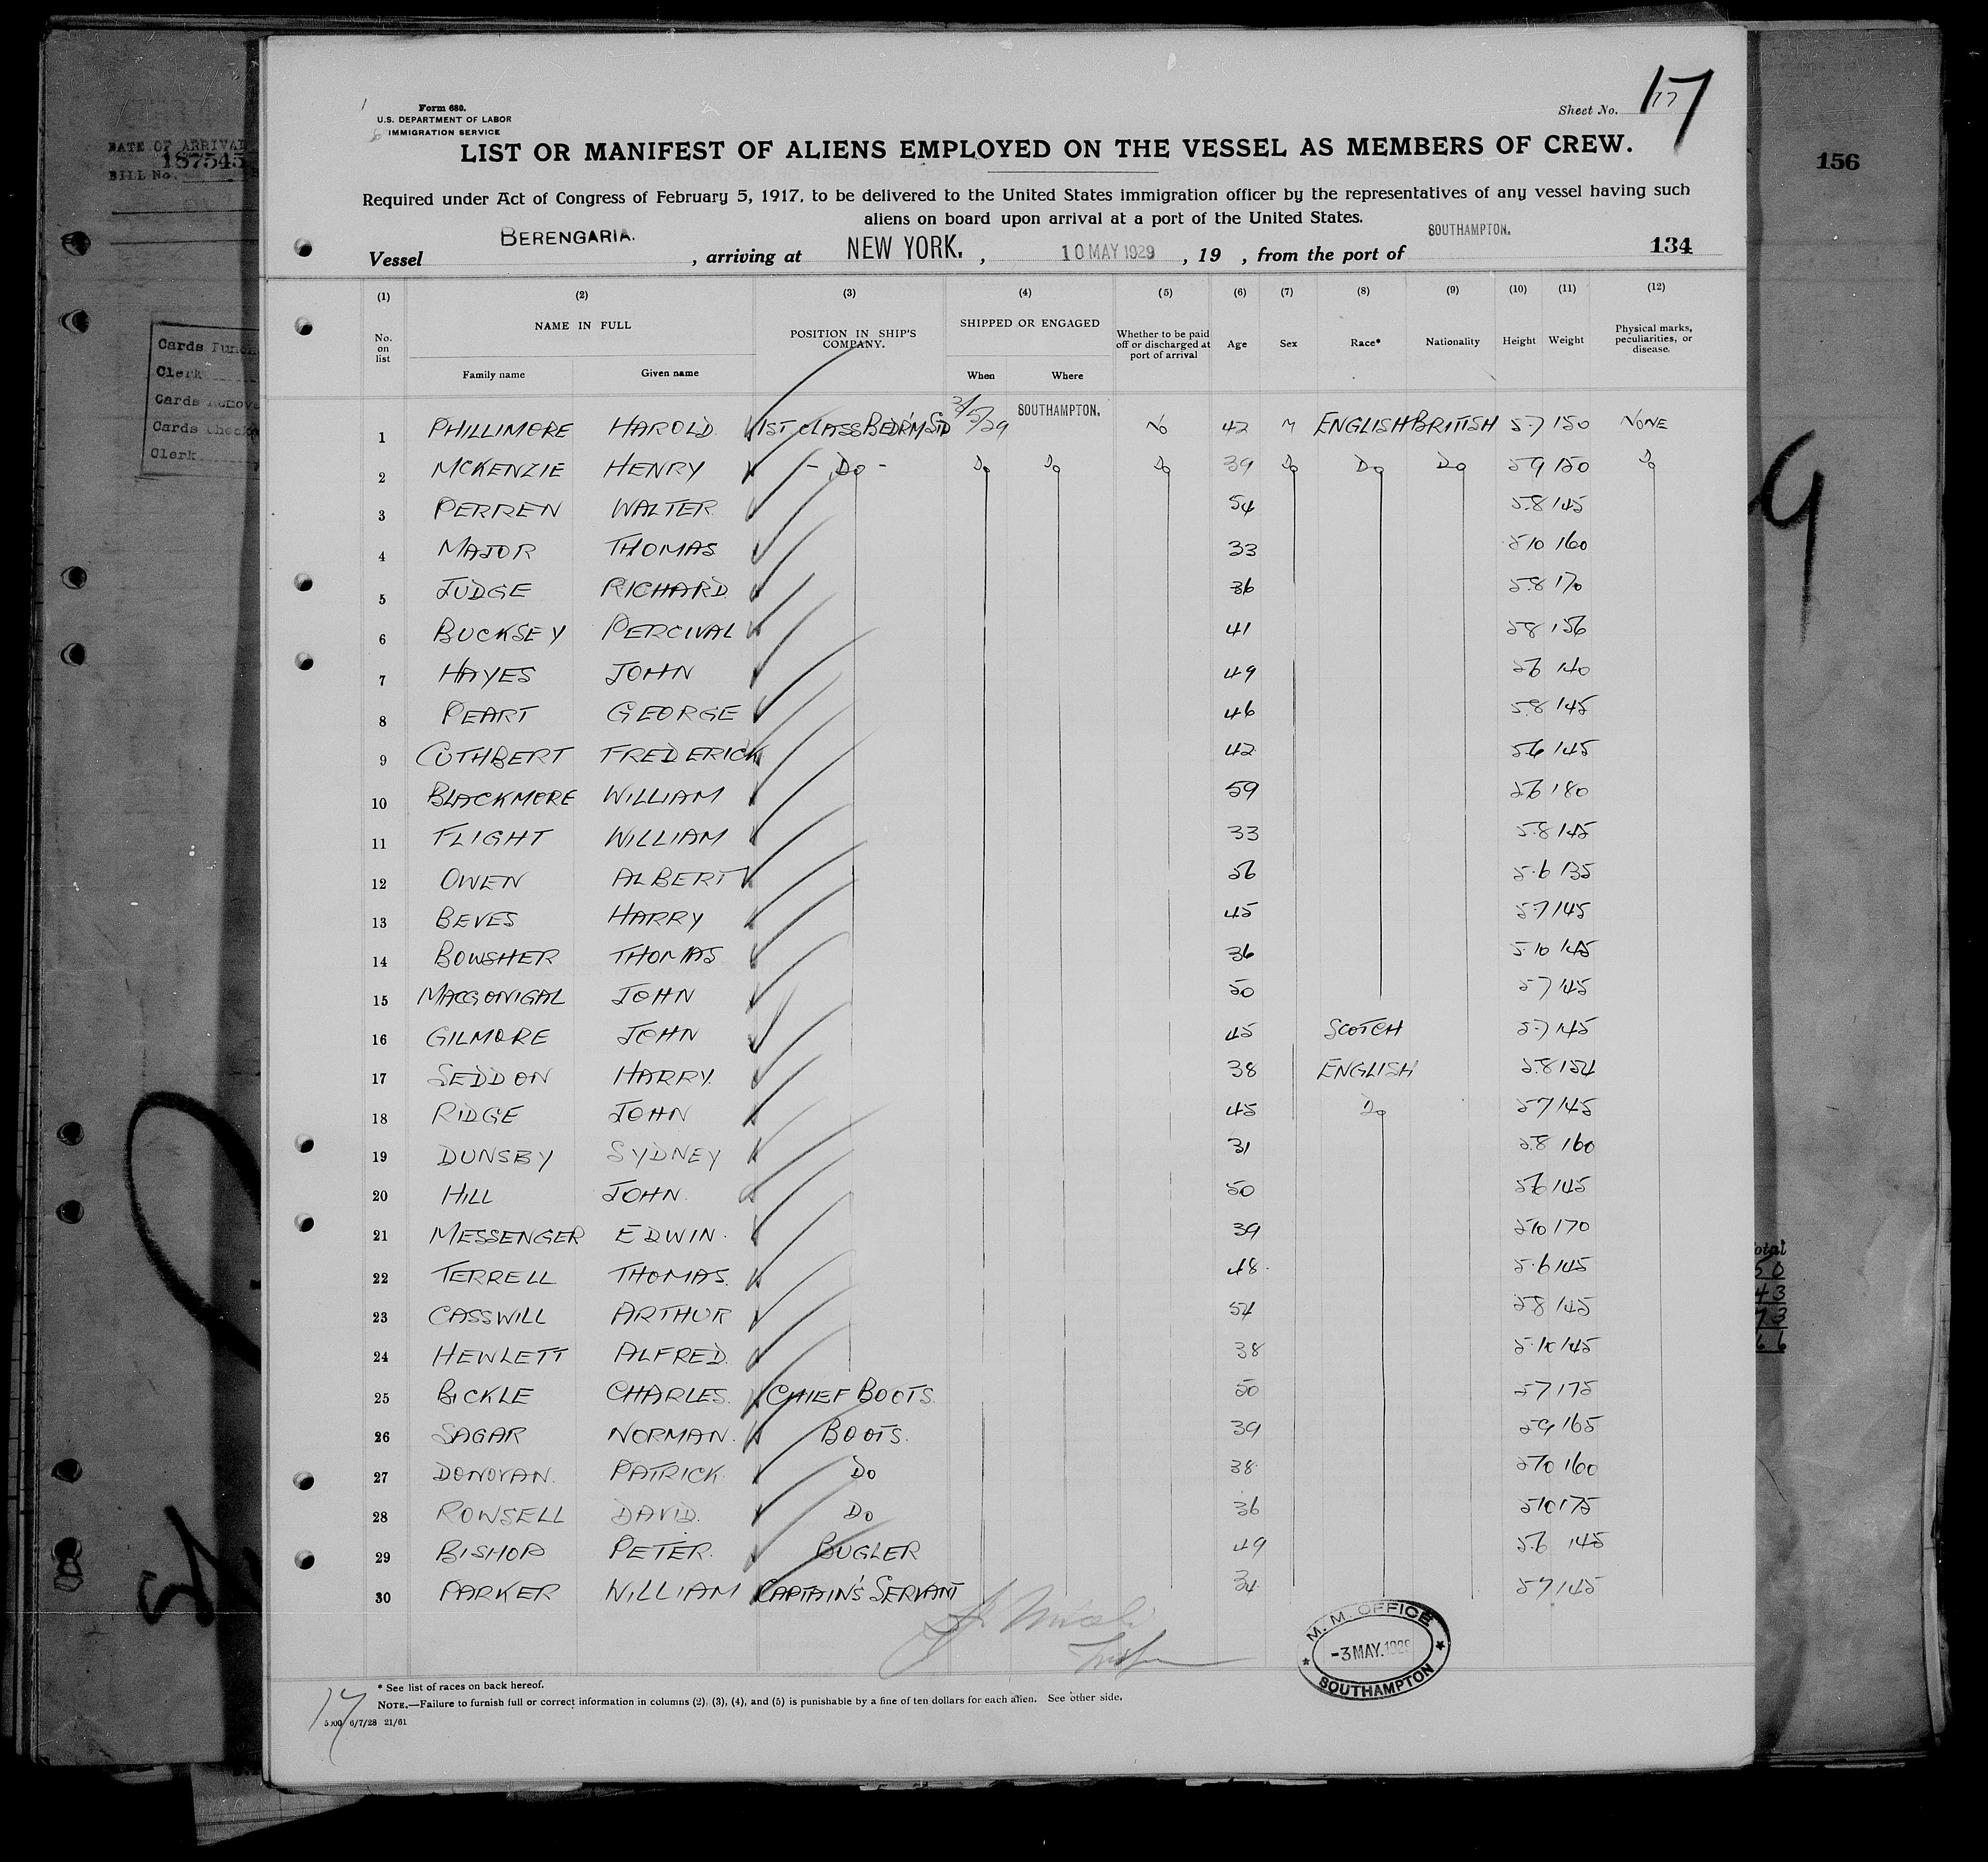 Form 680.
U.S. DEPARTMENT OF LABOR
IMMIGRATION SERVICE
Sheet No. 17
17
LIST OR MANIFEST OF ALIENS EMPLOYED ON THE VESSEL AS MEMBERS OF CREW.
Required under Act of Congress of February 5, 1917, to be delivered to the United States immigration officer by the representatives of any vessel having such
aliens on board upon arrival at a port of the United States.
Vessel BERENGARIA. , arriving at NEW YORK. , 10 MAY 1929 , 19 , from the port of SOUTHAMPTON. 134
(1) (2) (3) (4) (5) (6) (7) (8) (9) (10) (11) (12)
No. on list NAME IN FULL POSITION IN SHIP'S COMPANY. SHIPPED OR ENGAGED Whether to be paid off or discharged at port of arrival Age Sex Race* Nationality Height Weight Physical marks, peculiarities, or disease.
Family name Given name When Where
1 PHILLIMORE HAROLD 1ST CLASS BEDRM STD 3/5/29 SOUTHAMPTON. NO 42 M ENGLISH BRITISH 5.7 150 NONE
2 MCKENZIE HENRY - DO - DO DO DO 39 DO DO DO 5 9 150 DO
3 PERREN WALTER 54 5.8 145
4 MAJOR THOMAS 33 5 10 160
5 JUDGE RICHARD 36 5.8 170
6 BUCKSEY PERCIVAL 41 5 8 156
7 HAYES JOHN 49 5 6 140
8 PEART GEORGE 46 5.8 145
9 CUTHBERT FREDERICK 42 5.6 145
10 BLACKMORE WILLIAM 59 5.6 180
11 FLIGHT WILLIAM 33 5.8 145
12 OWEN ALBERT 56 5.6 135
13 BEVES HARRY 45 5.7 145
14 BOWSHER THOMAS 36 5 10 145
15 MACGONIGAL JOHN 50 5 7 145
16 GILMORE JOHN 45 SCOTCH 5.7 145
17 SEDDON HARRY. 38 ENGLISH 5.8 154
18 RIDGE JOHN 45 DO 5 7 145
19 DUNSBY SYDNEY 31 5.8 160
20 HILL JOHN. 50 5 6 145
21 MESSENGER EDWIN. 39 5 10 170
22 TERRELL THOMAS. 48. 5.6 145
23 CASSWILL ARTHUR 54 5 8 145
24 HEWLETT ALFRED. 38 5.10 145
25 BICKLE CHARLES. CHIEF BOOTS. 50 5 7 175
26 SAGAR NORMAN. BOOTS. 39 5 9 165
27 DONOVAN. PATRICK DO 38 5 10 160
28 ROWSELL DAVID. DO 36 5 10 175
29 BISHOP PETER. BUGLER 49 5.6 145
30 PARKER WILLIAM CAPTAIN'S SERVANT 34 5 7 145
M. M. OFFICE
-3 MAY. 1929
SOUTHAMPTON
* See list of races on back hereof.
NOTE.—Failure to furnish full or correct information in columns (2), (3), (4), and (5) is punishable by a fine of ten dollars for each alien. See other side.
17
6/7/28 21/61
DATE OF ARRIVAL
187545
BILL No.
Cards
Clerk
Cards
Cards
Clerk
156
9